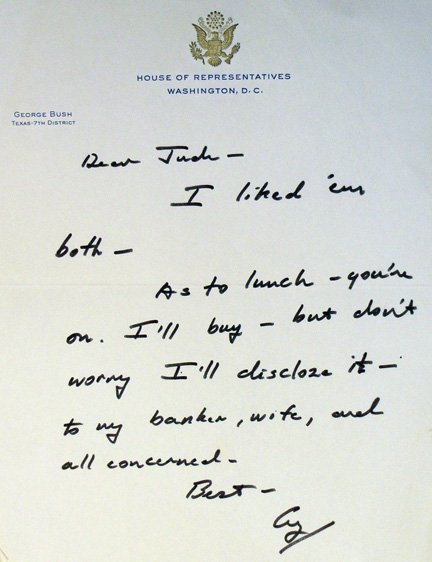 HOUSE OF REPRESENTATIVES
WASHINGTON, D. C.
GEORGE BUSH
TEXAS-7TH DISTRICT
Dear Jude —
I liked 'em
both —
As to lunch - you're
on. I'll buy - but don't
worry I'll disclose it —
to my banker, wife, and
all concerned -
Best -